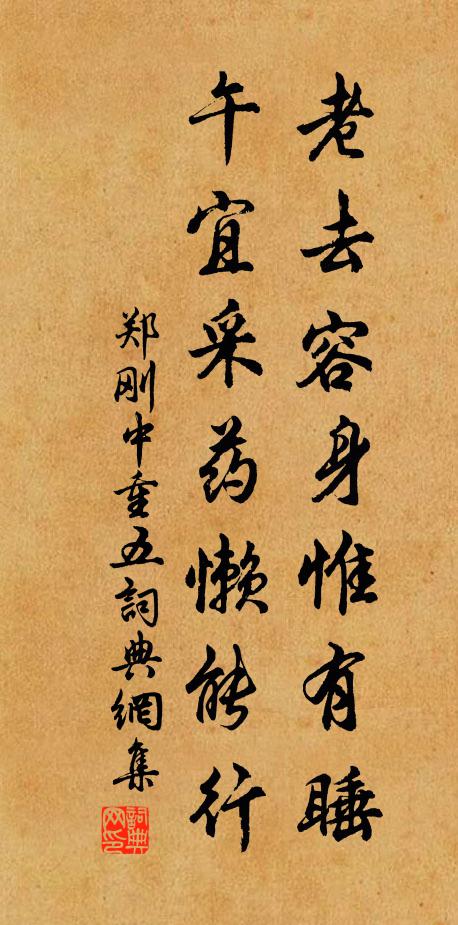 老去容身惟有睡
午宜采药懒能行
郑刚中重五詞典網集
詞典网印